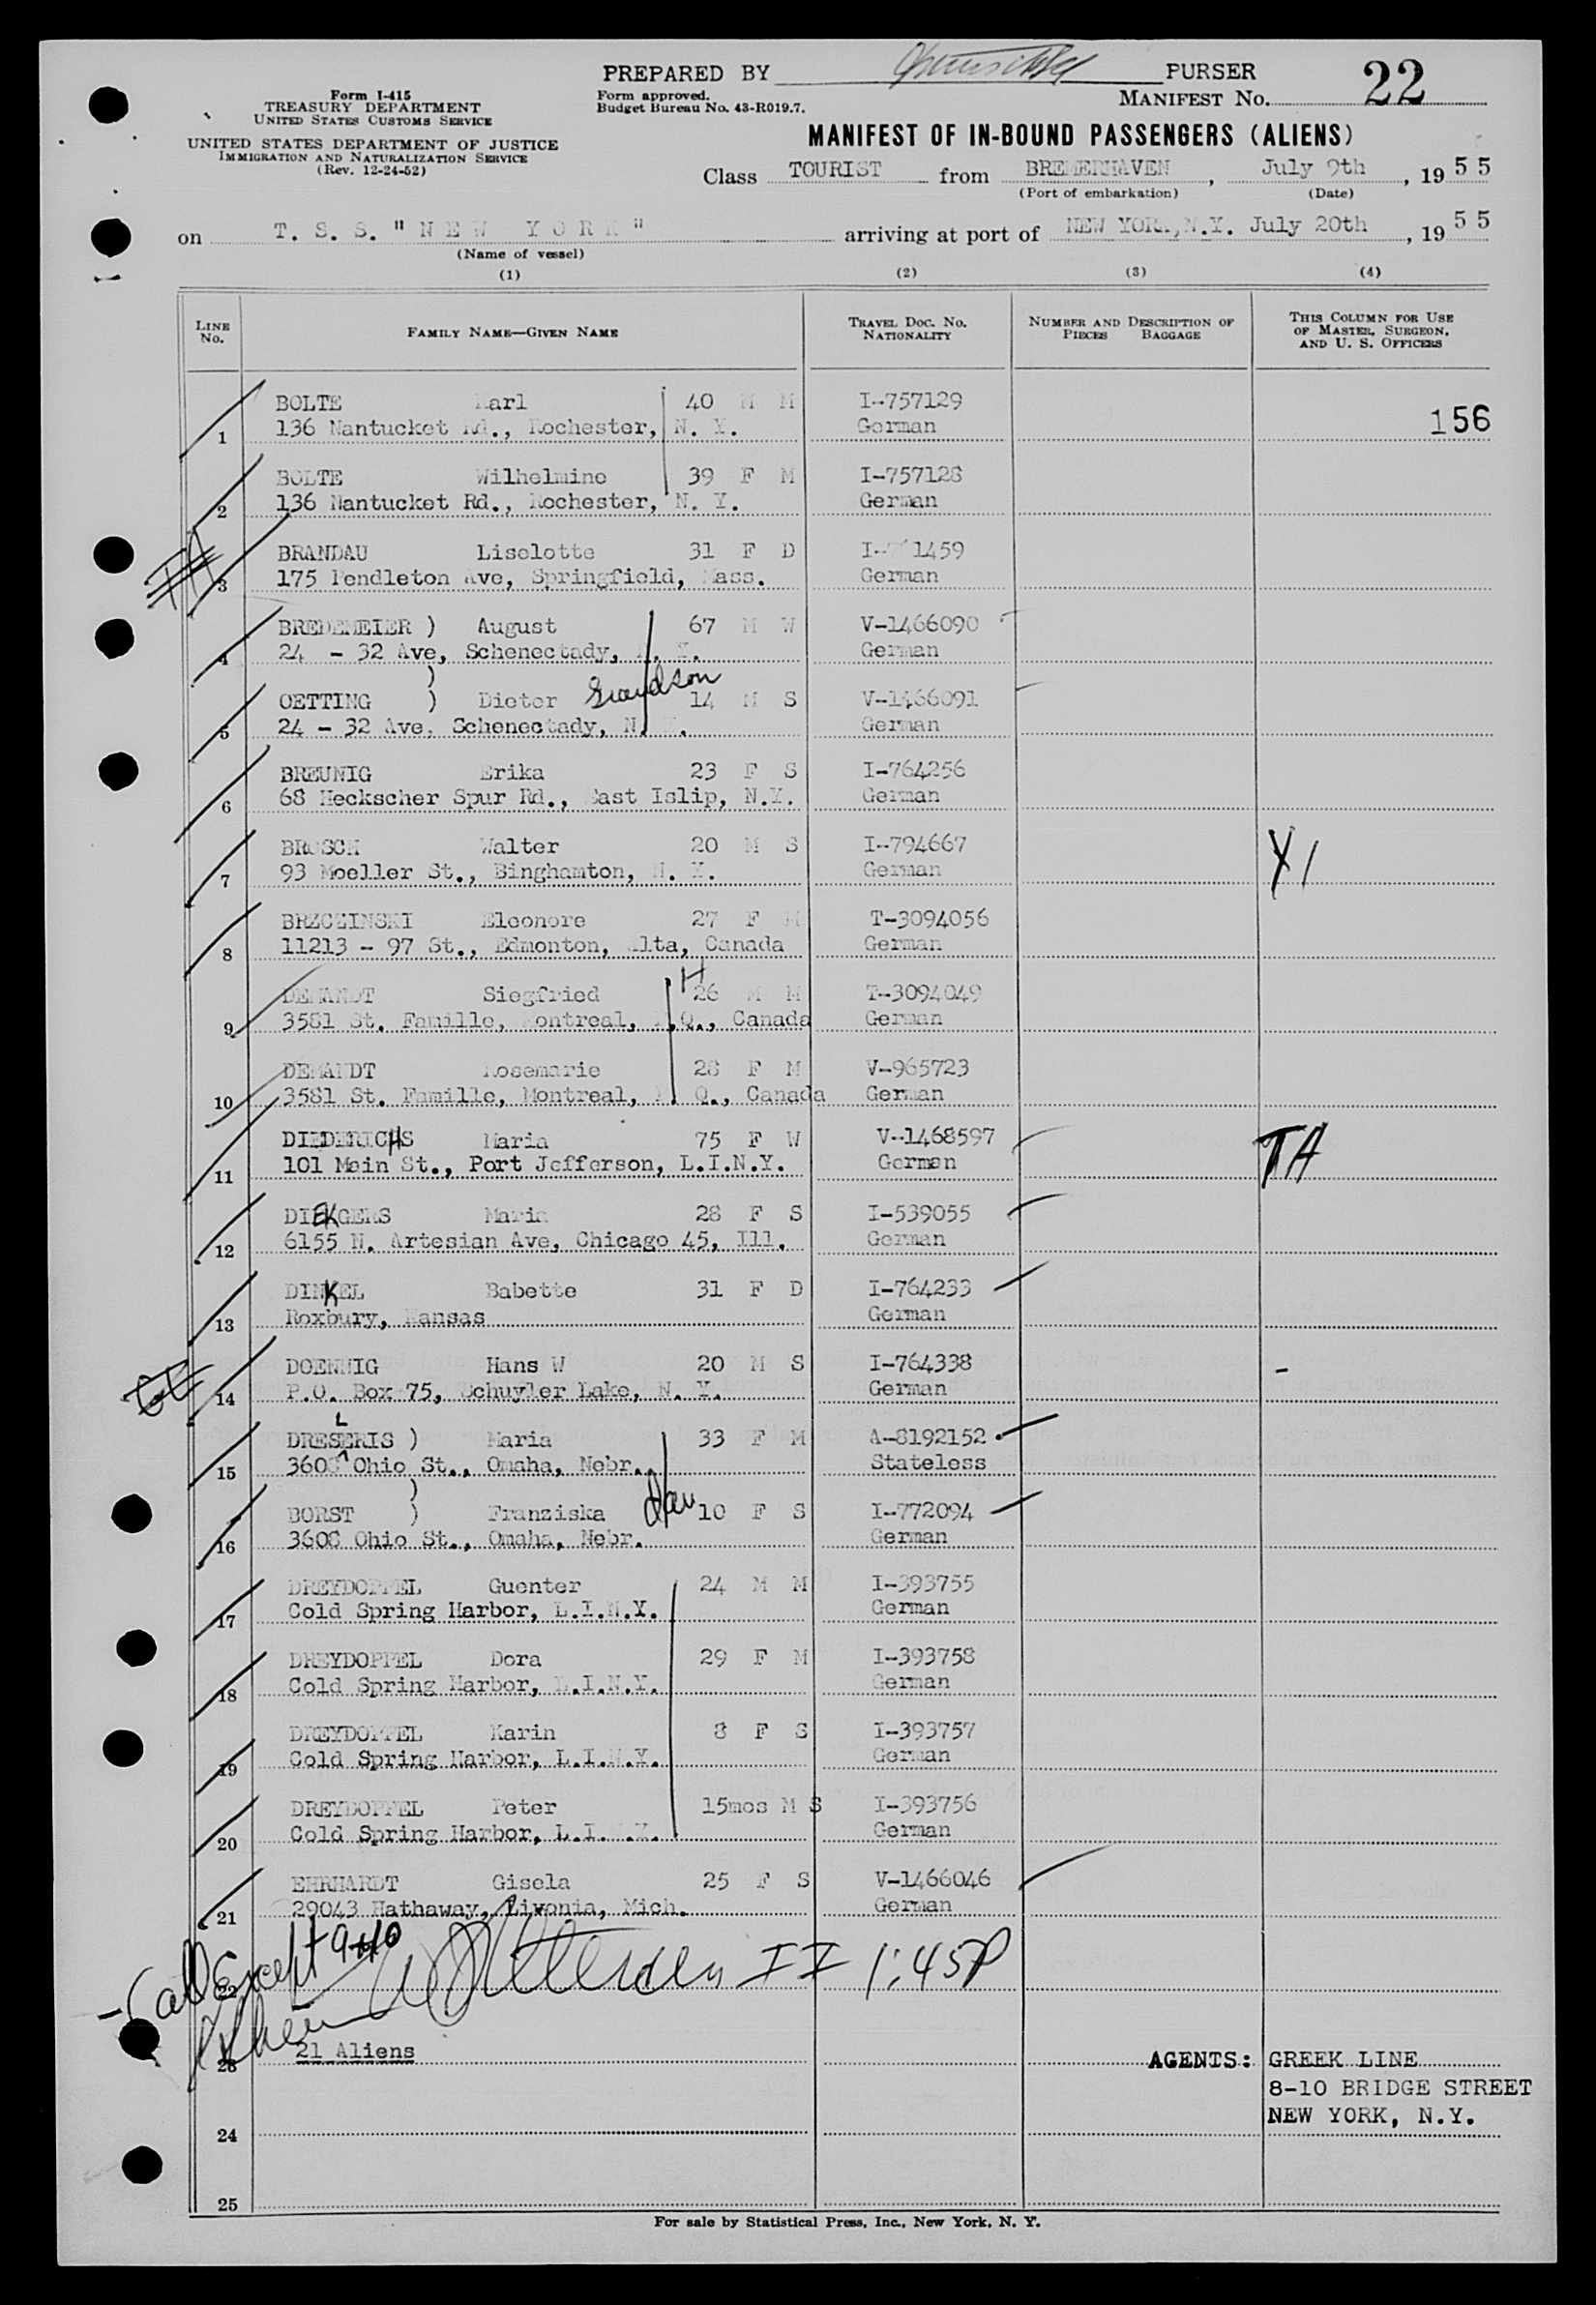 PREPARED BY PURSER
Form I-415
TREASURY DEPARTMENT
UNITED STATES CUSTOMS SERVICE
UNITED STATES DEPARTMENT OF JUSTICE
IMMIGRATION AND NATURALIZATION SERVICE
(Rev. 12-24-52)
Form approved.
Budget Bureau No. 43-R019.7.
MANIFEST No. 22
MANIFEST OF IN-BOUND PASSENGERS (ALIENS)
Class TOURIST from BREMERHAVEN, July 9th, 1955
(Port of embarkation) (Date)
on T. S. S. "NEW YORK" arriving at port of NEW YORK, N.Y. July 20th, 1955
(Name of vessel)
(1) (2) (3) (4)
LINE No. FAMILY NAME—GIVEN NAME TRAVEL DOC. NO. NATIONALITY NUMBER AND DESCRIPTION OF PIECES BAGGAGE THIS COLUMN FOR USE OF MASTER, SURGEON, AND U. S. OFFICERS
BOLTE Karl 40 M M I-757129
1 136 Nantucket Rd., Rochester, N. Y. German 156
BOLTE Wilhelmine 39 F M I-757128
2 136 Nantucket Rd., Rochester, N. Y. German
BRANDAU Liselotte 31 F D
3 175 Pendleton Ave, Springfield, Mass. German
BREDEMEIER ) August 67 M W V-1466090
4 24 - 32 Ave, Schenectady, N. Y. German
)
OETTING ) Dieter Grandson 14 M S V-1466091
5 24 - 32 Ave, Schenectady, N. Y. German
BREUNIG Erika 23 F S I-764256
6 68 Heckscher Spur Rd., East Islip, N.Y. German
BROSCH Walter 20 M S I-794667
7 93 Moeller St., Binghamton, N. Y. German
BRZCZINSKI Eleonore 27 F M T-3094056
8 11213 - 97 St., Edmonton, Alta, Canada German
H
DEMANDT Siegfried 26 M M T-3094049
9 3581 St. Famille, Montreal, P.Q., Canada German
DEMANDT Rosemarie 28 F M V-965723
10 3581 St. Famille, Montreal, P. Q., Canada German
DIEDERICHS Maria 75 F W V-1468597
11 101 Main St., Port Jefferson, L.I.N.Y. German TA
DIEKGERS Maria 28 F S I-539055
12 6155 N. Artesian Ave, Chicago 45, Ill. German
DINKEL Babette 31 F D I-764233
13 Roxbury, Kansas German
DOENNIG Hans W 20 M S I-764338
14 P.O. Box 75, Schuyler Lake, N. Y. German
L
DRESERIS ) Maria 33 F M A-8192152
15 3608 Ohio St., Omaha, Nebr. Stateless
)
BORST ) Franziska dau 10 F S I-772094
16 3608 Ohio St., Omaha, Nebr. German
DREYDOPPEL Guenter 24 M M I-393755
17 Cold Spring Harbor, L.I.N.Y. German
DREYDOPPEL Dora 29 F M I-393758
18 Cold Spring Harbor, L.I.N.Y. German
DREYDOPPEL Karin 8 F S I-393757
19 Cold Spring Harbor, L.I.N.Y. German
DREYDOPPEL Peter 15mos M S I-393756
20 Cold Spring Harbor, L.I.N.Y. German
EHRHARDT Gisela 25 F S V-1466046
21 29043 Hathaway, Livonia, Mich. German
all Except 9+10
22 II 1:45P
23 21 Aliens AGENTS: GREEK LINE
8-10 BRIDGE STREET
NEW YORK, N.Y.
24
25
For sale by Statistical Press, Inc., New York, N. Y.